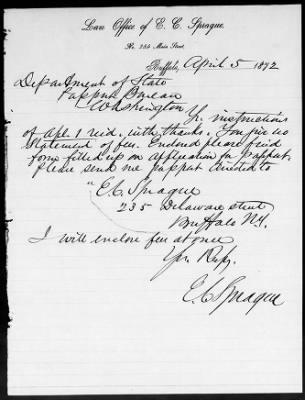 Law Office of E. C. Sprague.
No. 284 Main Street,
Buffalo, April 5 1892
Department of State
Passport Bureau
Washington Yr. instructions
of Apl. 1 recd. with thanks. You give no
statement of fee. Enclosed please find
form filled up on application for passport.
Please send me passport directed to
"E. C. Sprague
235 Delaware street
Buffalo N.Y.
I will enclose fee at once
Yrs. Respy.
E. C. Sprague